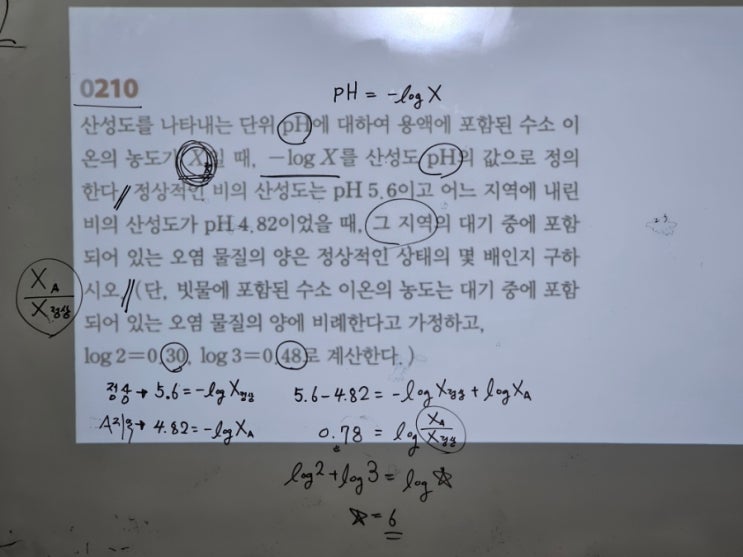 0210
pH = -log X
산성도를 나타내는 단위 pH에 대하여 용액에 포함된 수소 이
온의 농도가 X일 때, -log X를 산성도 pH의 값으로 정의
한다. 정상적인 비의 산성도는 pH 5.6이고 어느 지역에 내린
비의 산성도가 pH 4.82이었을 때, 그 지역의 대기 중에 포함
되어 있는 오염 물질의 양은 정상적인 상태의 몇 배인지 구하
시오. (단, 빗물에 포함된 수소 이온의 농도는 대기 중에 포함
되어 있는 오염 물질의 양에 비례한다고 가정하고,
log 2=0.30, log 3=0.48로 계산한다.)
X_A / X_정상
정상→ 5.6 = -log X_정상
A지역→ 4.82 = -log X_A
5.6-4.82 = -log X_정상 + log X_A
0.78 = log X_A / X_정상
log2 + log3 = log ☆
☆ = 6